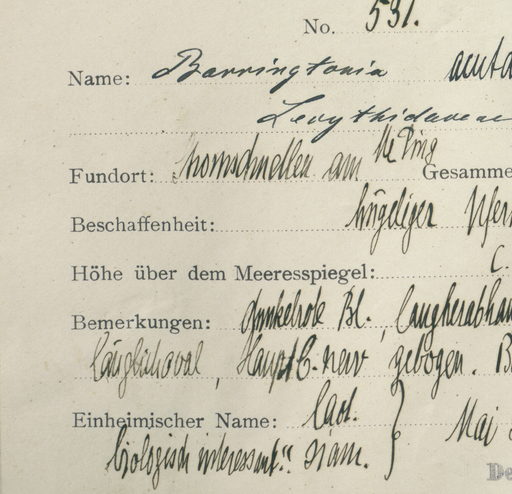 No. 531.
Name: Barringtonia acuta
Lecythidaceae
Fundort: Stromschnellen am Me Ping Gesamme
Beschaffenheit: hügeliger Ufer
Höhe über dem Meeresspiegel: C.
Bemerkungen: dunkelrote Bl., langherabhän
länglichoval, Haupt b. nerv gebogen. B
Einheimischer Name: Laot. } Mai
"biologisch interessant". Siam.
De